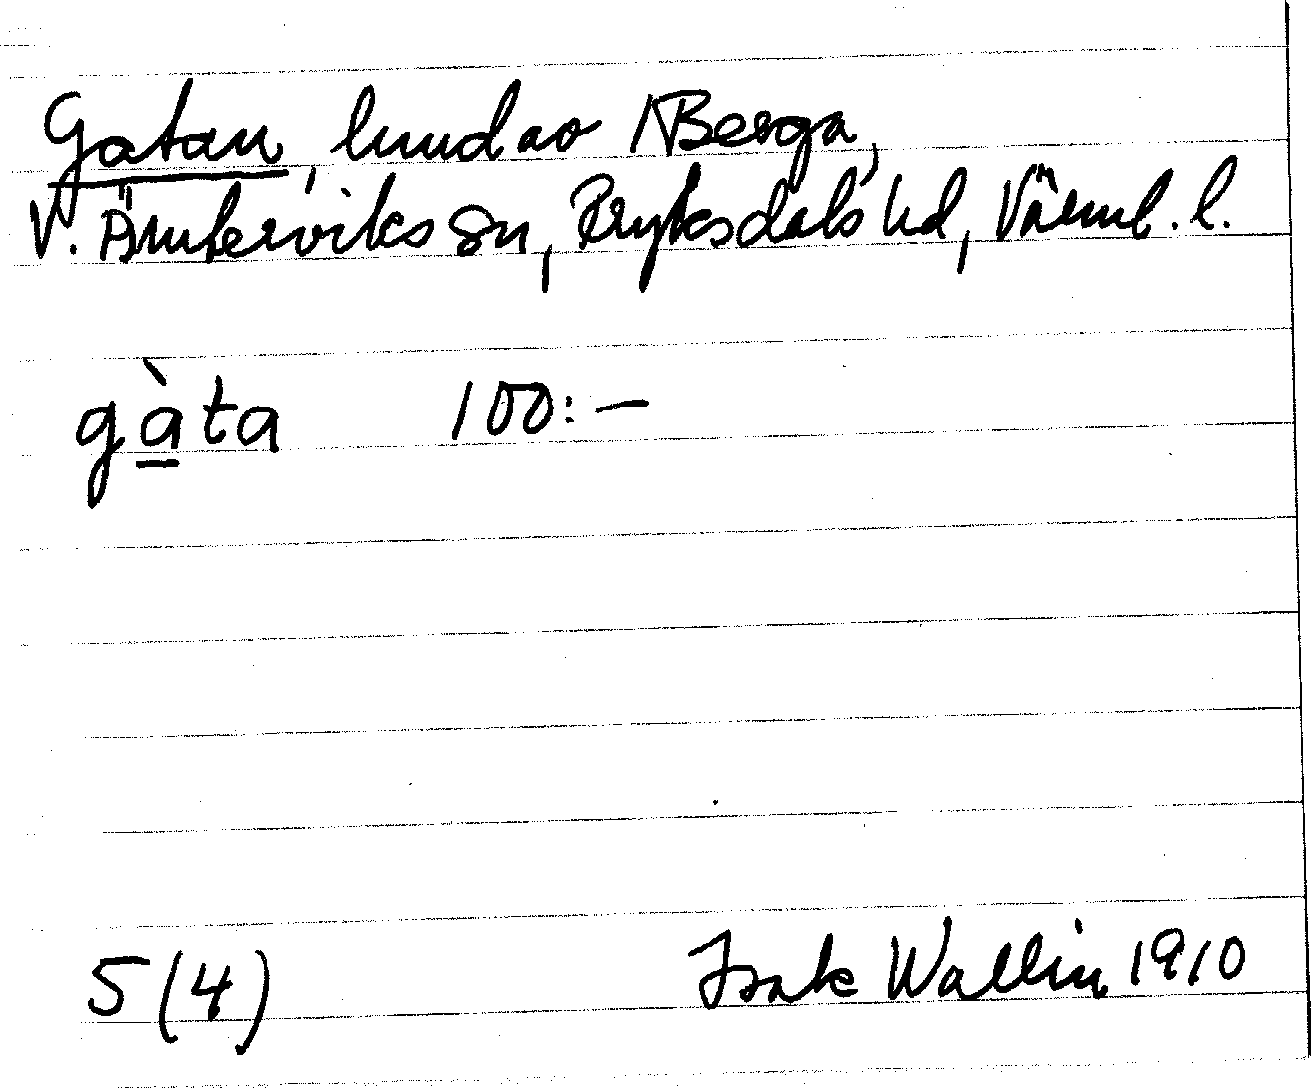 Gatan, lund ao /Berga,
V. Ämterviks sn, Fryksdals hd, Värml. l.
gà̱ta 100:—
5 (4) Isak Wallin 1910